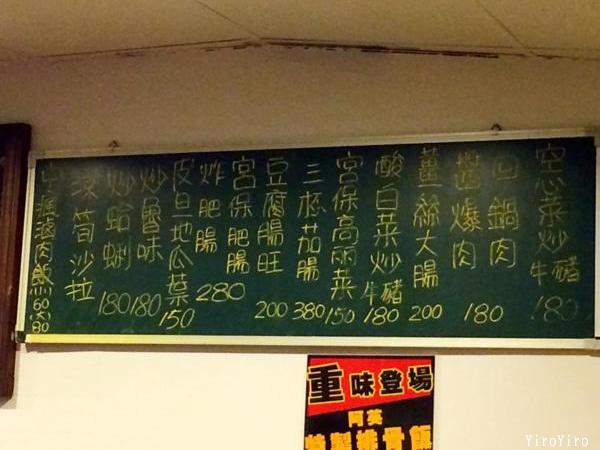 空心菜炒牛豬 180
回鍋肉
醬爆肉 180
薑絲大腸 200
酸白菜炒牛豬 180
宮保高麗菜 150
三杯茄腸 380
豆腐腸旺 200
宮保肥腸
炸肥腸 280
皮旦地瓜葉 150
炒魯味 180
炒蛤蜊 180
涼筍沙拉
滷肉飯小60大80
重味登場
阿英
特製排骨飯
YiroYiro